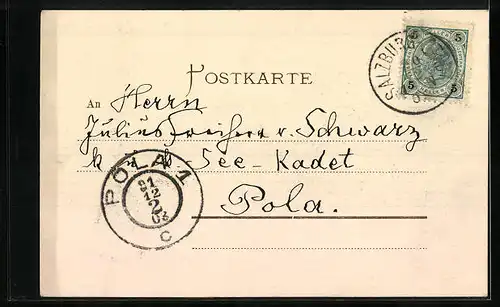 5 5
SALZBURG
5 5
POSTKARTE
An Herrn
Julius Freiherr v. Schwarz
k See-Kadet
POLA 1
Pola.
C